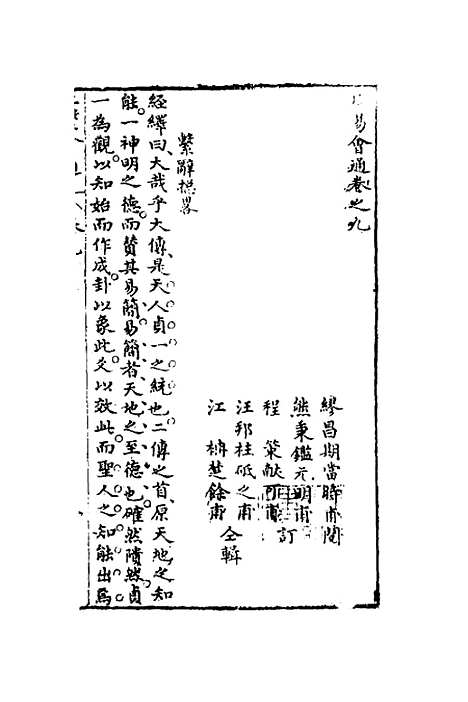 易會通卷之九
繆昌期當時甫閱
熊秉鑑元明甫
程策獻可甫訂
汪邦柱砥之甫
江柟楚餘甫仝輯
繫辭摠畧
經繹曰大哉乎大傳是天人貞一之統也二傳之首原天地之知
能一神明之德而贊其易簡易簡者天地之至德也確然隤然貞
一為觀以知始而作成卦以象此爻以效此而聖人之知能出焉